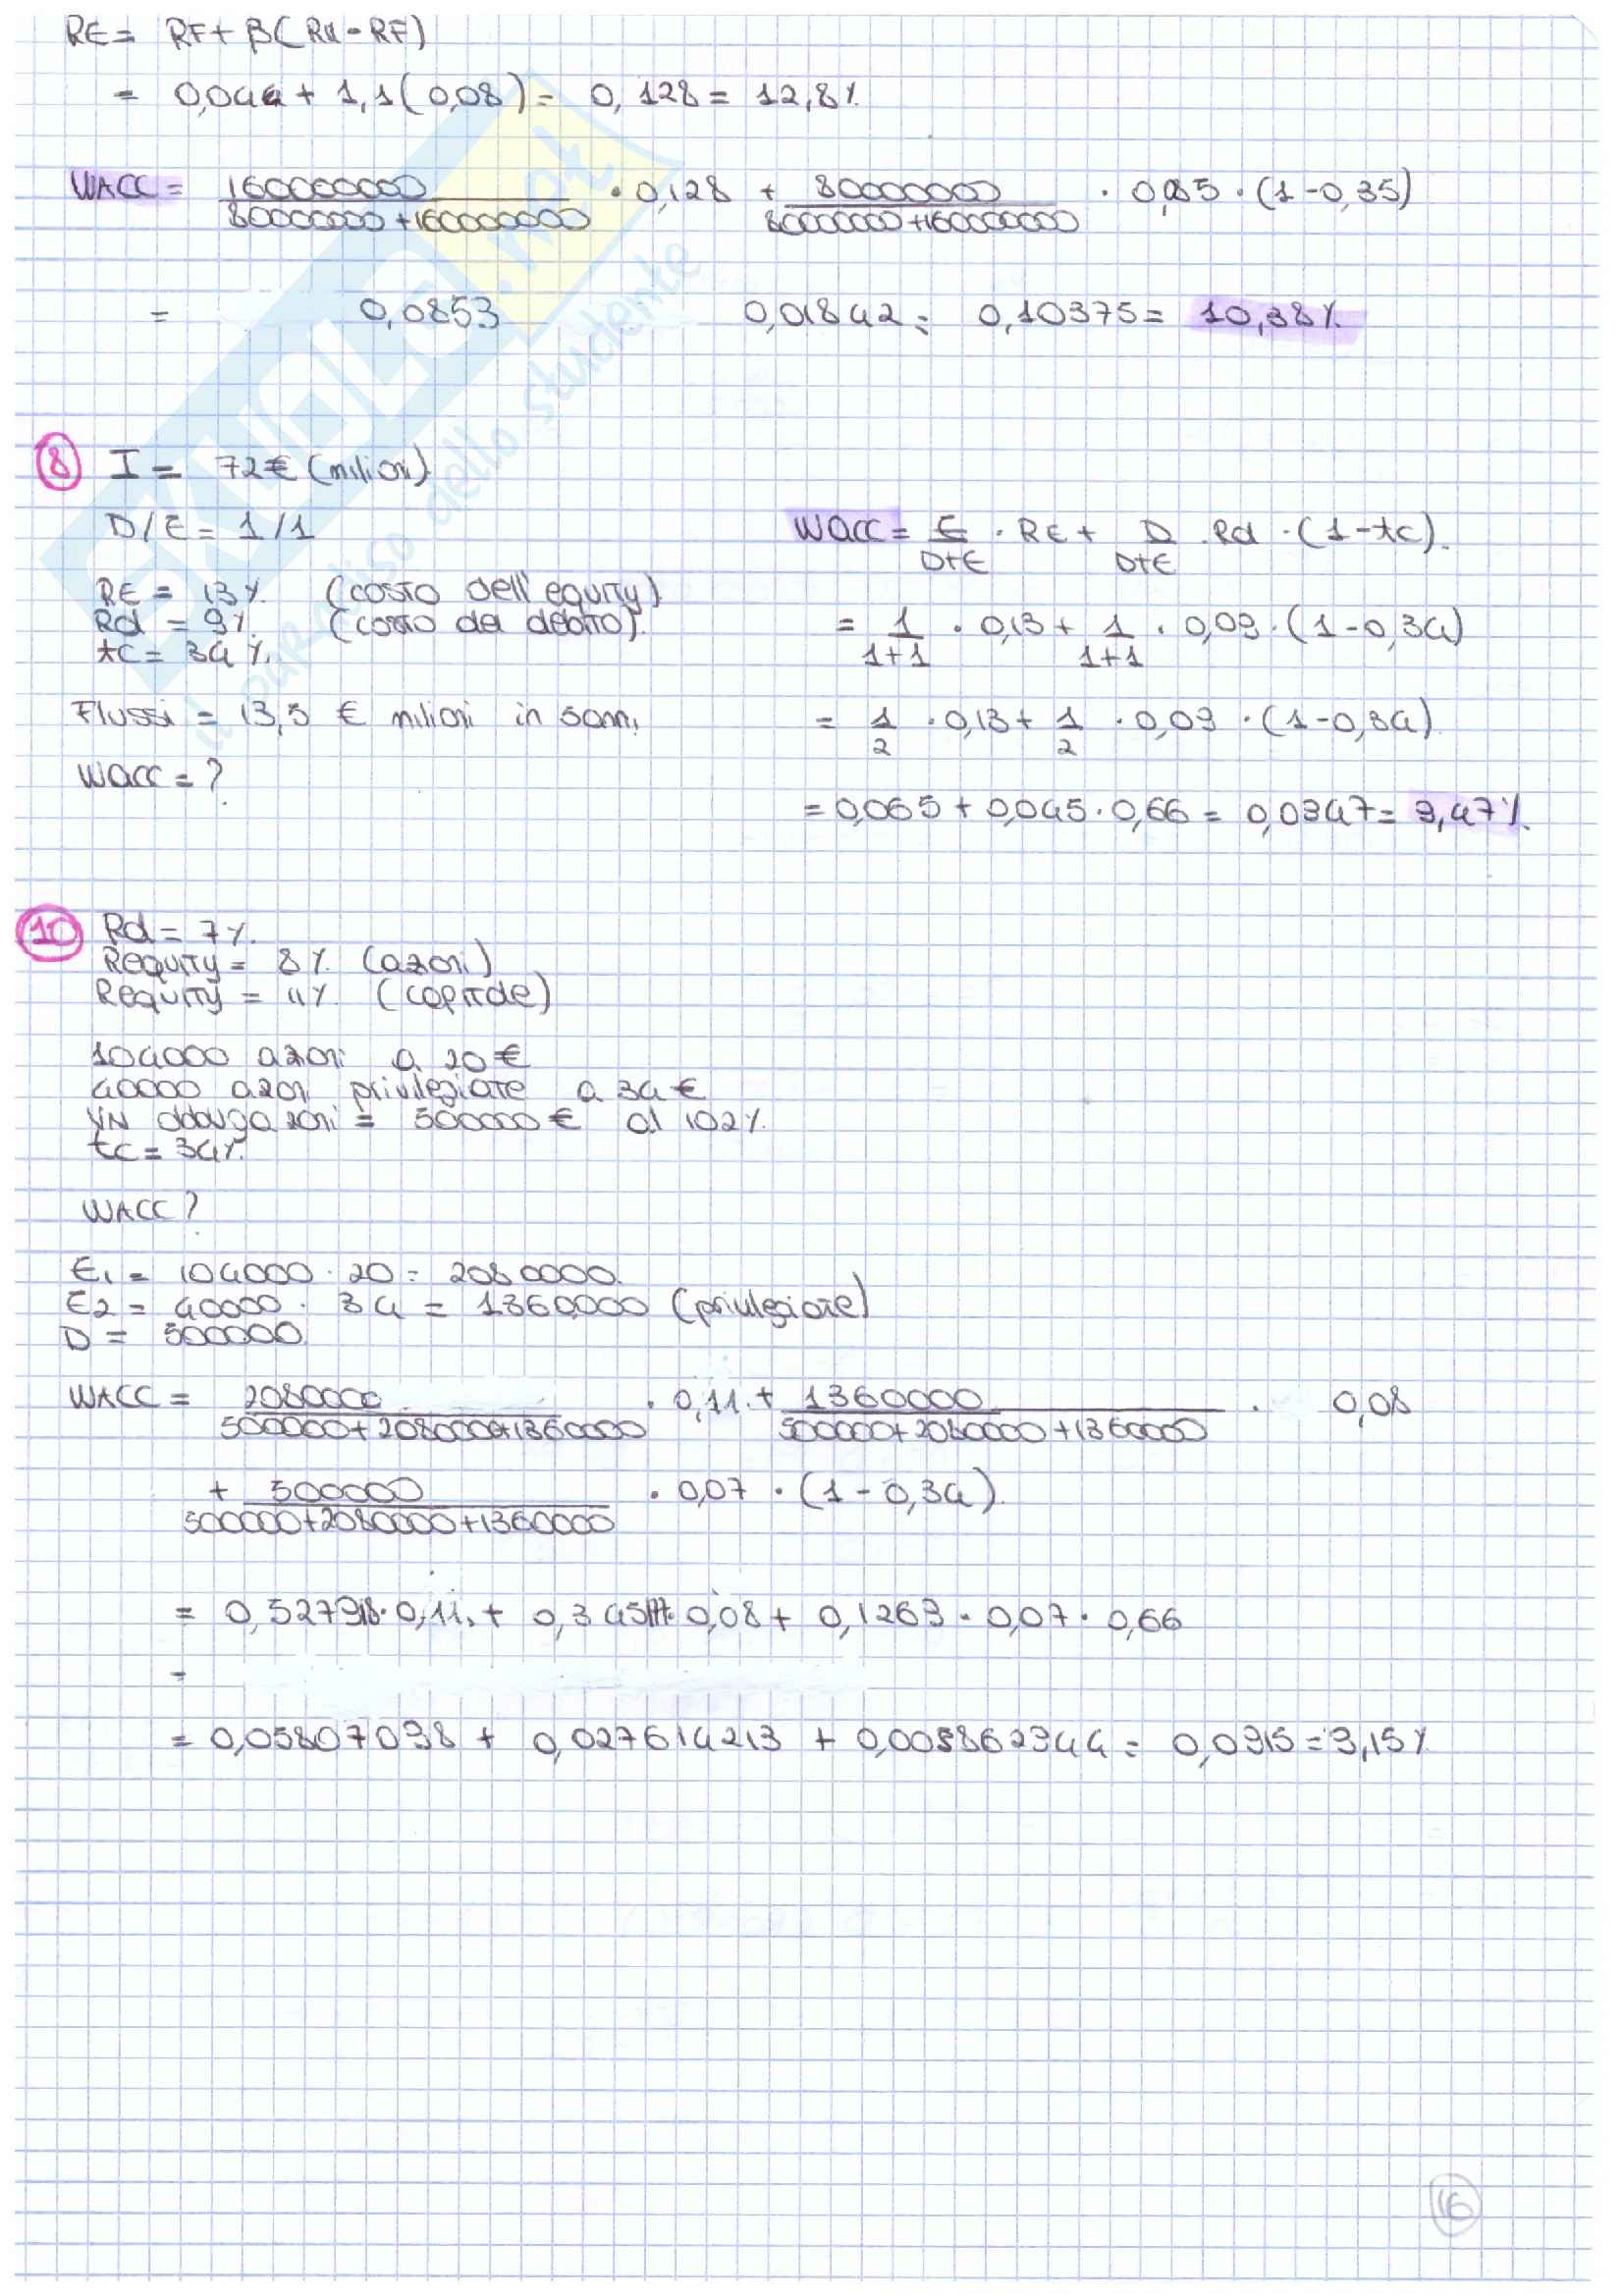 RE = RF + β(RM - RF)
= 0,044 + 1,1(0,08) = 0,128 = 12,8%
WACC = 160000000 / 80000000 + 160000000 · 0,128 + 80000000 / 80000000 + 160000000 · 0,085 · (1 - 0,35)
= 0,0853 0,01842 = 0,10375 = 10,38%
8 I = 72€ (milioni)
D/E = 1/1
RE = 13% (costo dell'equity)
Rd = 9% (costo del debito)
tc = 34%
Flussi = 13,5 € milioni in 5 anni
WACC = ?
WACC = E/D+E · RE + D/D+E · Rd · (1 - tc)
= 1/1+1 · 0,13 + 1/1+1 · 0,09 · (1 - 0,34)
= 1/2 · 0,13 + 1/2 · 0,09 · (1 - 0,34)
= 0,065 + 0,045 · 0,66 = 0,0947 = 9,47%
10 Rd = 7%
Requity = 8% (azioni)
Requity = 11% (capitale)
104000 azioni a 20€
40000 azioni privilegiate a 34€
VN obbligazioni = 500000€ al 102%
tc = 34%
WACC?
E1 = 104000 · 20 = 2080000
E2 = 40000 · 34 = 1360000 (privilegiate)
D = 500000
WACC = 2080000 / 500000 + 2080000 + 1360000 · 0,11 + 1360000 / 500000 + 2080000 + 1360000 · 0,08
+ 500000 / 500000 + 2080000 + 1360000 · 0,07 · (1 - 0,34)
= 0,52791 · 0,11 + 0,3451 · 0,08 + 0,1269 · 0,07 · 0,66
=
= 0,05807098 + 0,027614213 + 0,005862944 = 0,0915 = 9,15%
16
SKUOLA.net
il paradiso dello studente